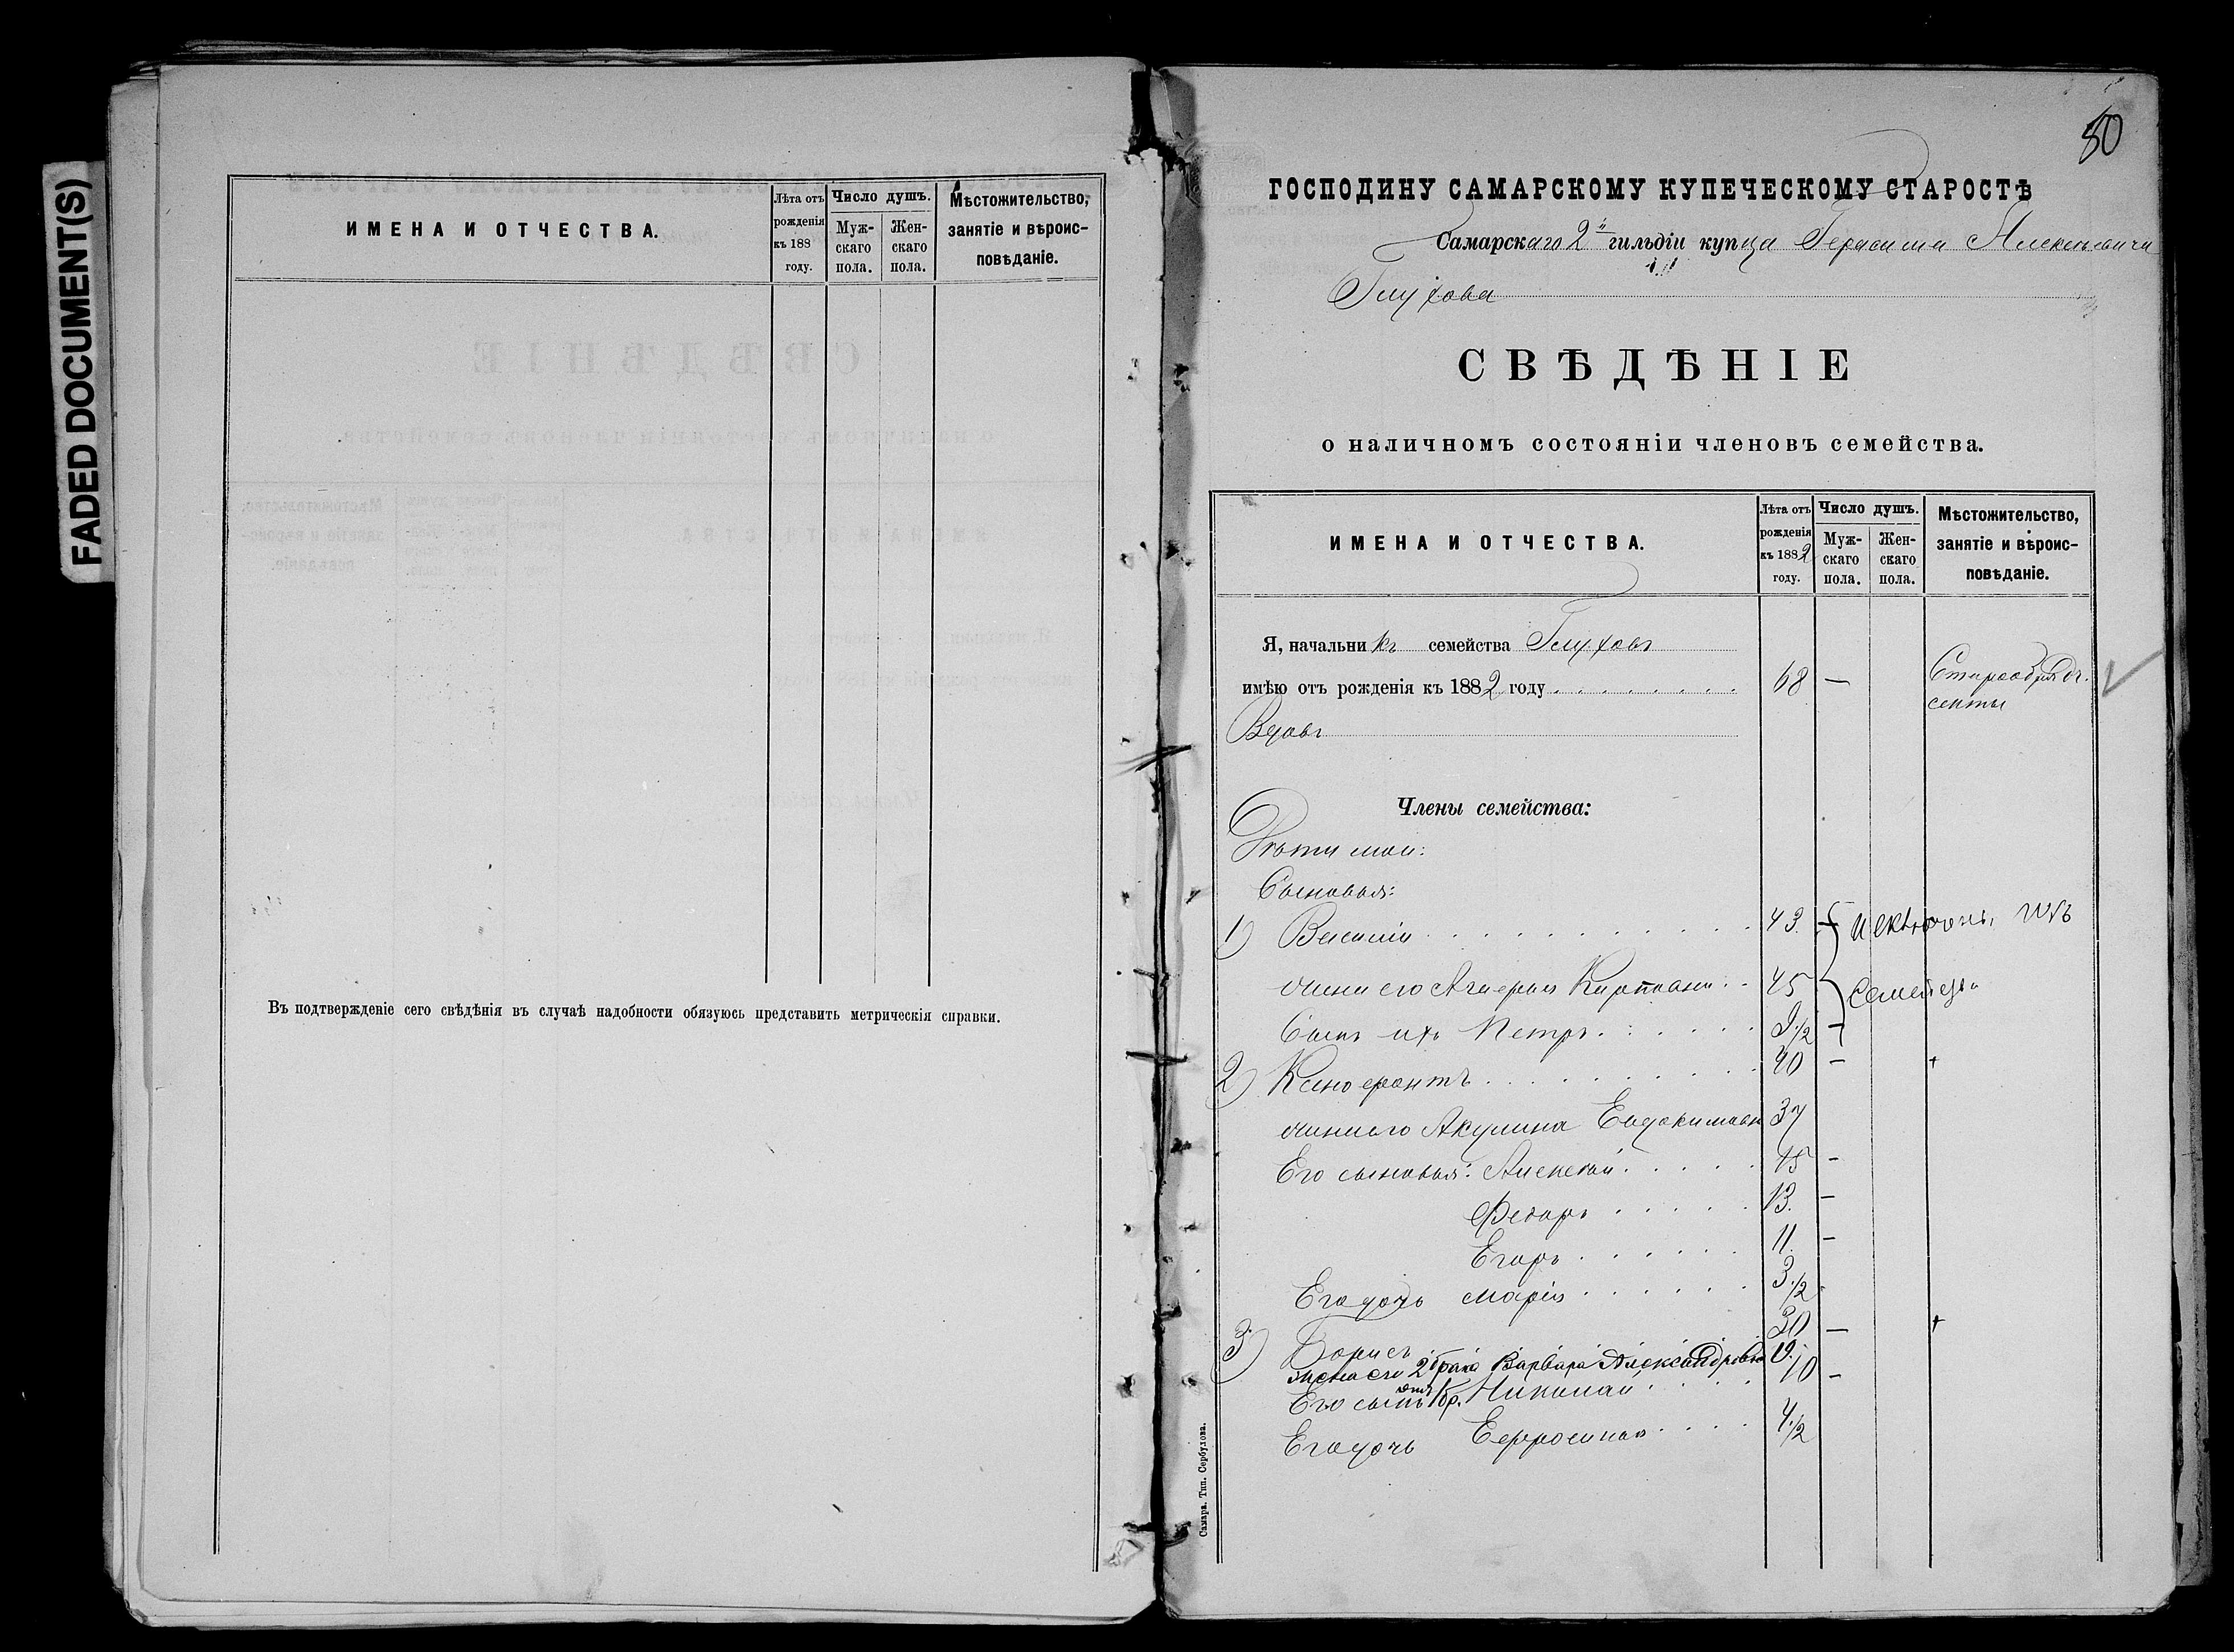 FADED DOCUMENT(S)
ИМЕНА И ОТЧЕСТВА.
Лѣта отъ рожденія къ 188 году.
Число душъ.
Мужскаго пола.
Женскаго пола.
Мѣстожительство, занятіе и вѣроисповѣданіе.
Въ подтвержденіе сего свѣдѣнія въ случаѣ надобности обязуюсь представить метрическія справки.
80
ГОСПОДИНУ САМАРСКОМУ КУПЕЧЕСКОМУ СТАРОСТѢ
Самарскаго 2й гильдіи купца Герасима Алексѣевича
Глухова
СВѢДѢНІЕ
о наличномъ состояніи членовъ семейства.
ИМЕНА И ОТЧЕСТВА.
Лѣта отъ рожденія къ 1882 году.
Число душъ.
Мужскаго пола.
Женскаго пола.
Мѣстожительство, занятіе и вѣроисповѣданіе.
Я, начальникъ семейства Глуховъ
имѣю отъ рожденія къ 1882 году 68 — Старообрядч.
секты
Вдовъ
Члены семейства:
Дѣти мои:
Сыновья:
1) Василій 43 — Исключенъ изъ
жена его 45 семейства
Сынъ ихъ Петръ 9 1/2 —
2) Ксенофонтъ 40 — +
жена его Акулина Евдокимовн 37
Его сыновья: Алексѣй 15 —
Федоръ 13. —
Егоръ 11. —
Его дочь Марія 3 1/2
3) Борисъ 30 — +
жена его 2 брака Варвара Александровна 19.
Его сынъ отъ 1 бр. Николай 10 —
Его дочь Ефросинья 4 1/2
Самара. Тип. Сербулова.